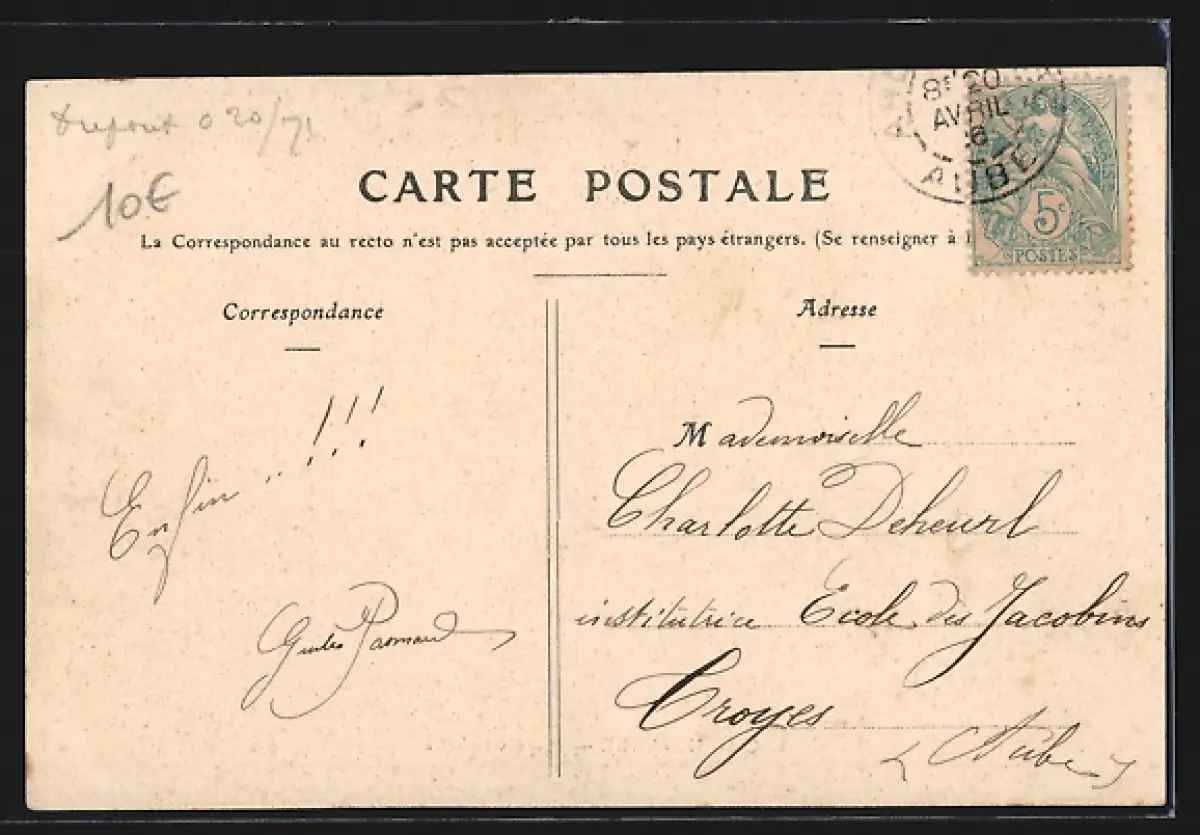 0 20/71
10€
8E 20
AVRIL
6
AUBE
5c
POSTES
CARTE POSTALE
La Correspondance au recto n'est pas acceptée par tous les pays étrangers. (Se renseigner à
Correspondance
Adresse
Enfin ..!!!
Mademoiselle
Charlotte Deheurl
institutrice Ecole des Jacobins
Troyes
(Aube)